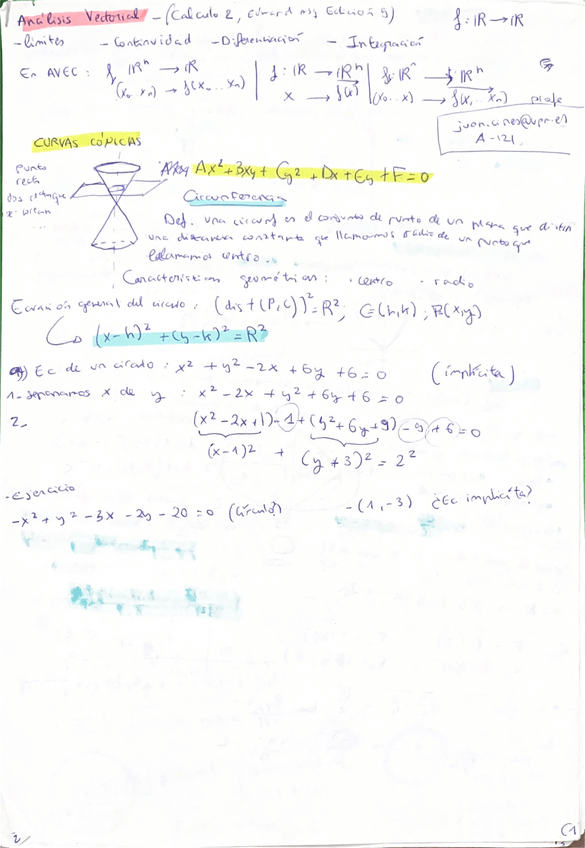 Análisis Vectorial - (Calculo 2, Edición 9) f: ℝ → ℝ
- límites - Continuidad - Diferenciación - Integración
En AVEC: f: ℝⁿ → ℝ | f: ℝ → ℝⁿ | f: ℝⁿ → ℝⁿ
(x₀..xₙ) → f(x₀...xₙ) | x → f(x) | (x₀...x) → f(x, ... xₙ) profe
A-121
CURVAS CÓNICAS
punto
recta
Ax² + Bxy + Cy² + Dx + Ey + F = 0
Circunferencia
Def. una circunf es el conjunto de punto de un plano que
una distancia constante que llamamos radio de un punto que
llamamos centro.
Características geométricas: · centro · radio
Ecuación general del círculo: (dist(P,C))² = R²; C=(h,k); P(x,y)
(x-h)² + (y-k)² = R²
Ec de un círculo: x² + y² - 2x + 6y + 6 = 0 (implícita)
1- separamos x de y: x² - 2x + y² + 6y + 6 = 0
2- (x² - 2x + 1) - 1 + (y² + 6y + 9) - 9 + 6 = 0
(x-1)² + (y+3)² = 2²
- Ejercicio
-x² + y² - 3x - 2y - 20 = 0 (Círculo?) - (1,-3) ¿Ec implícita?
2/ (1